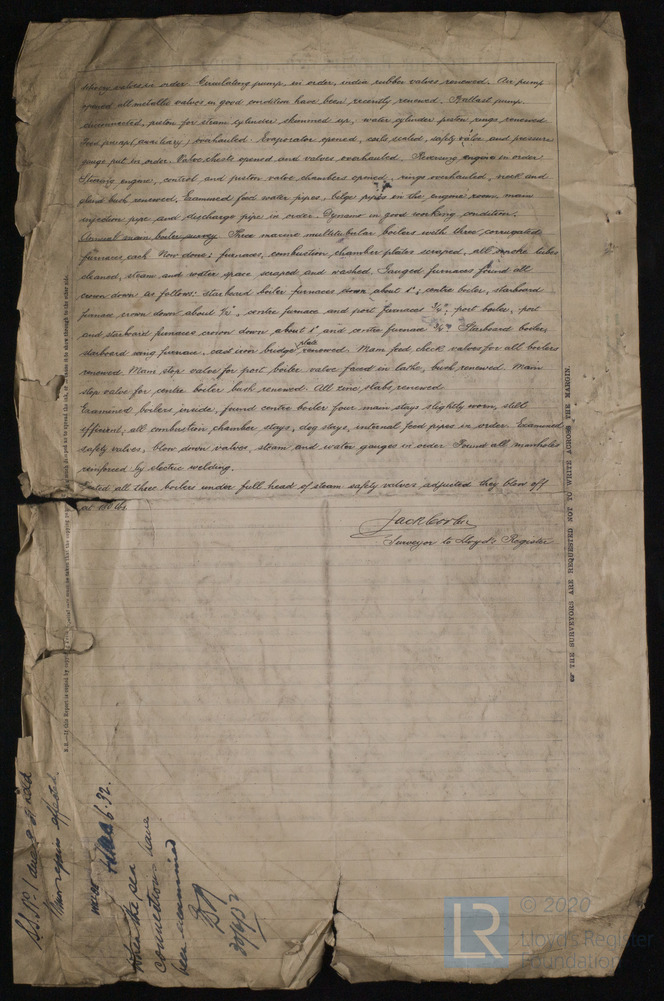 delivery valves in order. Circulating pump, in order, india rubber valves renewed. Air pump
opened all metallic valves in good condition have been recently renewed. Ballast pump
disconnected, piston for steam cylinder skimmed up, water cylinder piston rings renewed
Feed pump (auxiliary) overhauled. Evaporator opened, coils scaled, safety valve and pressure
gauge put in order. Valve chests opened and valves overhauled. Reversing engine in order
Steering engine, control and piston valve chambers opened, rings overhauled, neck and
gland bush renewed. Examined feed water pipes, belge pipes in the engine room, main
injection pipe and discharge pipe in order. Dynamo in good working condition.
Annual main boiler survey Three marine multitubular boilers with three corrugated
furnaces each Now done: furnaces, combustion chamber plates scraped, all smoke tubes
cleaned, steam and water space scraped and washed. Gauged furnaces found all
crown down as follows: starboard boiler furnaces down about 1"; centre boiler, starboard
furnace crown down about 1/2", centre furnace and port furnaces 3/4"; port boiler, port
and starboard furnaces crown down about 1" and centre furnace 3/4" Starboard boiler,
starboard wing furnace, cast iron bridge plate renewed. Main feed check valves for all boilers
renewed Main stop valve for port boiler valve faced in lathe, bush renewed. Main
stop valve for centre boiler bush renewed. All zinc slabs renewed
Examined boilers inside, found centre boiler four main stays slightly worn, still
efficient; all combustion chamber stays, dog stays, internal feed pipes in order. Examined
safety valves, blow down valves, steam and water gauges in order Found all manholes
reinforced by electric welding.
Tested all three boilers under full head of steam safety valves adjusted they blew off
at lbs
Surveyor to Lloyd's Register
THE SURVEYORS ARE REQUESTED NOT TO WRITE ACROSS THE MARGIN.
6.32.
Note the sea
connections have
been examined
30/6/32
© 2020
LR
Lloyd's Register
Foundation